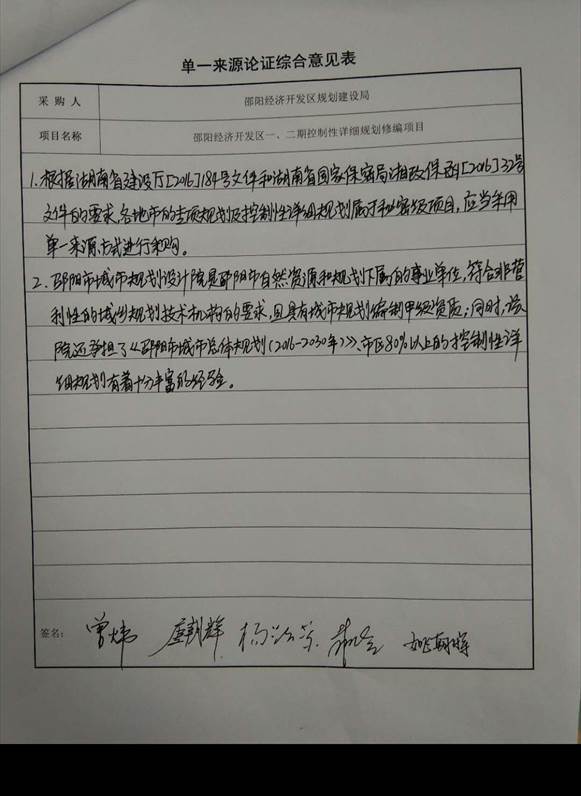 单一来源论证综合意见表
采 购 人 邵阳经济开发区规划建设局
项目名称 邵阳经济开发区一、二期控制性详细规划修编项目
1.根据湖南省建设厅[2016]184号文件和湖南省国家保密局湘政保函[2016]32号
文件的要求,各地市的专项规划及控制性详细规划属于秘密级项目,应当采用
单一来源方式进行采购。
2.邵阳市城市规划设计院是邵阳市自然资源和规划下属的事业单位,符合非营
利性的城乡规划技术机构的要求,且具有城市规划编制甲级资质;同时,该
院还承担了《邵阳市城市总体规划(2016-2030年)》、市区80%以上的控制性详
细规划有着十分丰富的经验。
签名: 曾炜